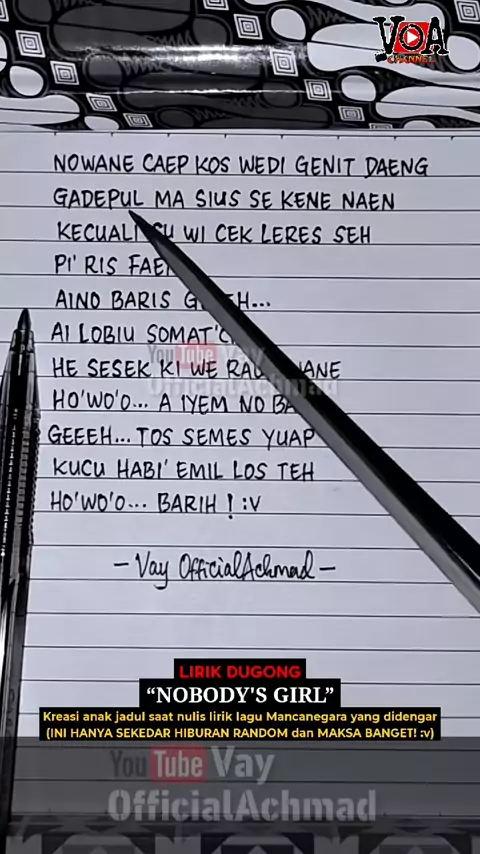 VOA
CHANNEL
NOWANE CAEP KOS WEDI GENIT DAENG
GADEPUL MA SIUS SE KENE NAEN
KECUALI WI CEK LERES SEH
PI' RIS
AINO BARIS
AI LOBIU
HE SESEK KI WE
HO'WO'O... A IYEM NO
GEEEH... TOS SEMES YUAP
KUCU HABI' EMIL LOS TEH
HO'WO'O... BARIH ! :V
YouTube Vay
OfficialAchmad
- Vay OfficialAchmad -
LIRIK DUGONG
“NOBODY'S GIRL”
Kreasi anak jadul saat nulis lirik lagu Mancanegara yang didengar
(INI HANYA SEKEDAR HIBURAN RANDOM dan MAKSA BANGET! :v)
YouTube Vay
OfficialAchmad